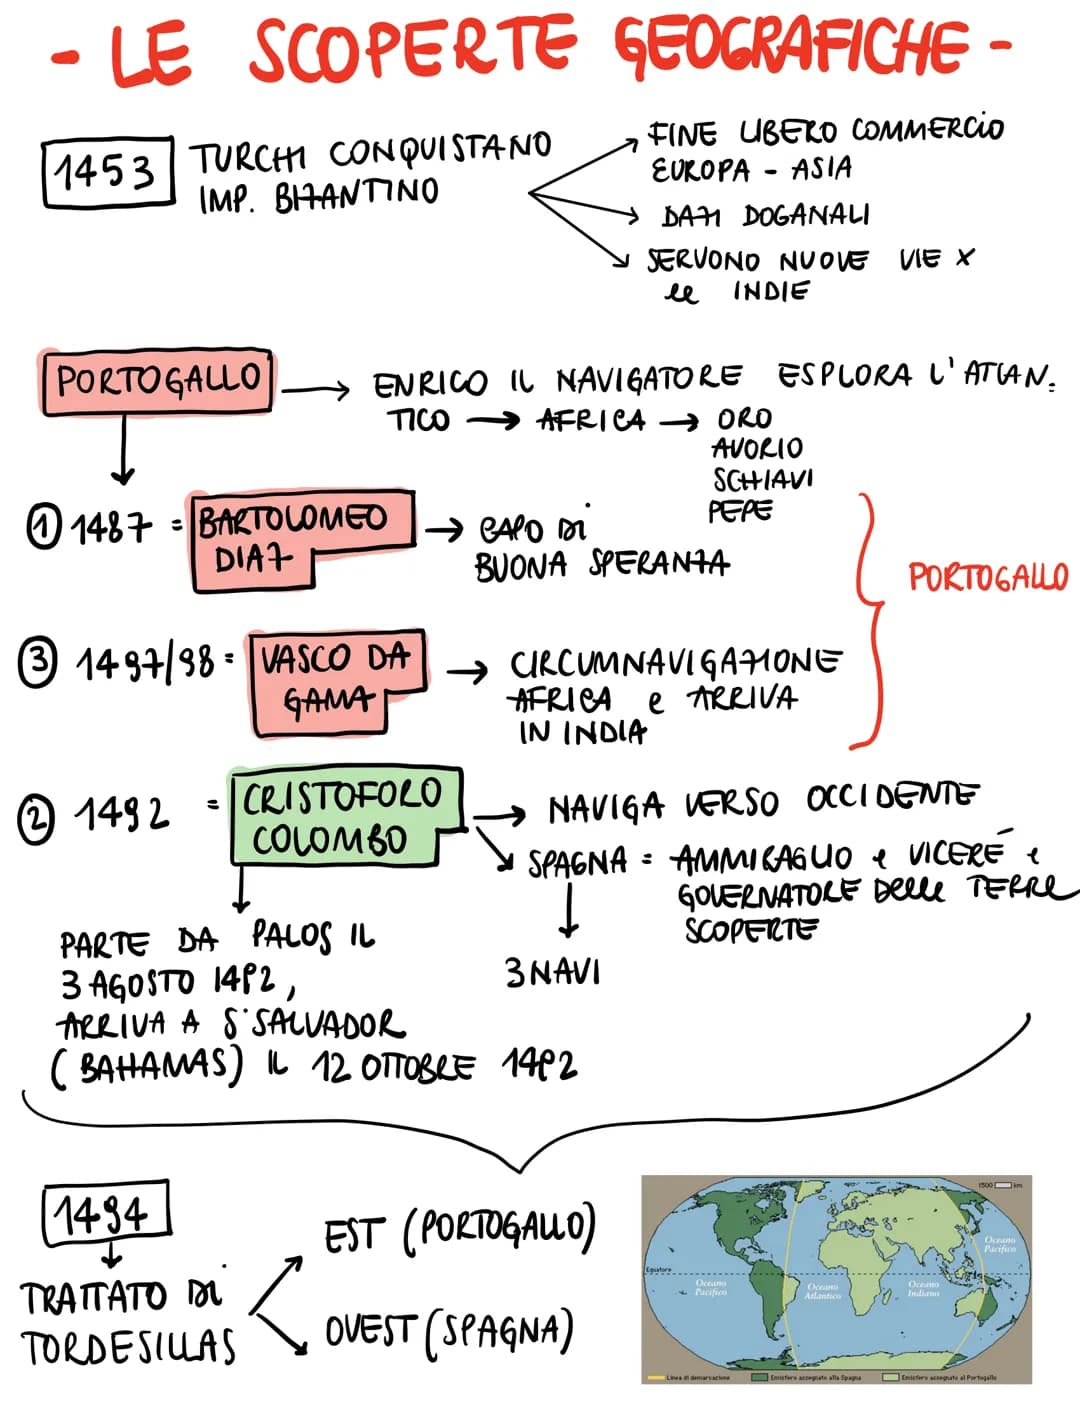 - LE SCOPERTE GEOGRAFICHE -
1453
TURCHI CONQUISTANO
IMP. BIZANTINO
FINE LIBERO COMMERCIO
EUROPA - ASIA
DAZI DOGANALI
SERVONO NUOVE VIE X
le INDIE
PORTOGALLO
ENRICO IL NAVIGATORE ESPLORA L'ATLAN.
TICO → AFRICA → ORO
AVORIO
SCHIAVI
PEPE
① 1487 = BARTOLOMEO
DIAZ
→ CAPO DI
BUONA SPERANZA
③ 1497/98 = VASCO DA
GAMA
→ CIRCUMNAVIGAZIONE
AFRICA e ARRIVA
IN INDIA
PORTOGALLO
② 1492 = CRISTOFORO
COLOMBO
→ NAVIGA VERSO OCCIDENTE
SPAGNA = AMMIRAGLIO e VICERÉ e
GOVERNATORE DELLE TERRE
SCOPERTE
3 NAVI
PARTE DA PALOS IL
3 AGOSTO 1492,
ARRIVA A S. SALVADOR
(BAHAMAS) IL 12 OTTOBRE 1492
1494
TRATTATO DI
TORDESILLAS
EST (PORTOGALLO)
OVEST (SPAGNA)
1500 km
Oceano
Pacifico
Equatore
Oceano
Pacifico
Oceano
Atlantico
Oceano
Indiano
Linea di demarcazione
Emisfero assegnato alla Spagna
Emisfero assegnato al Portogallo